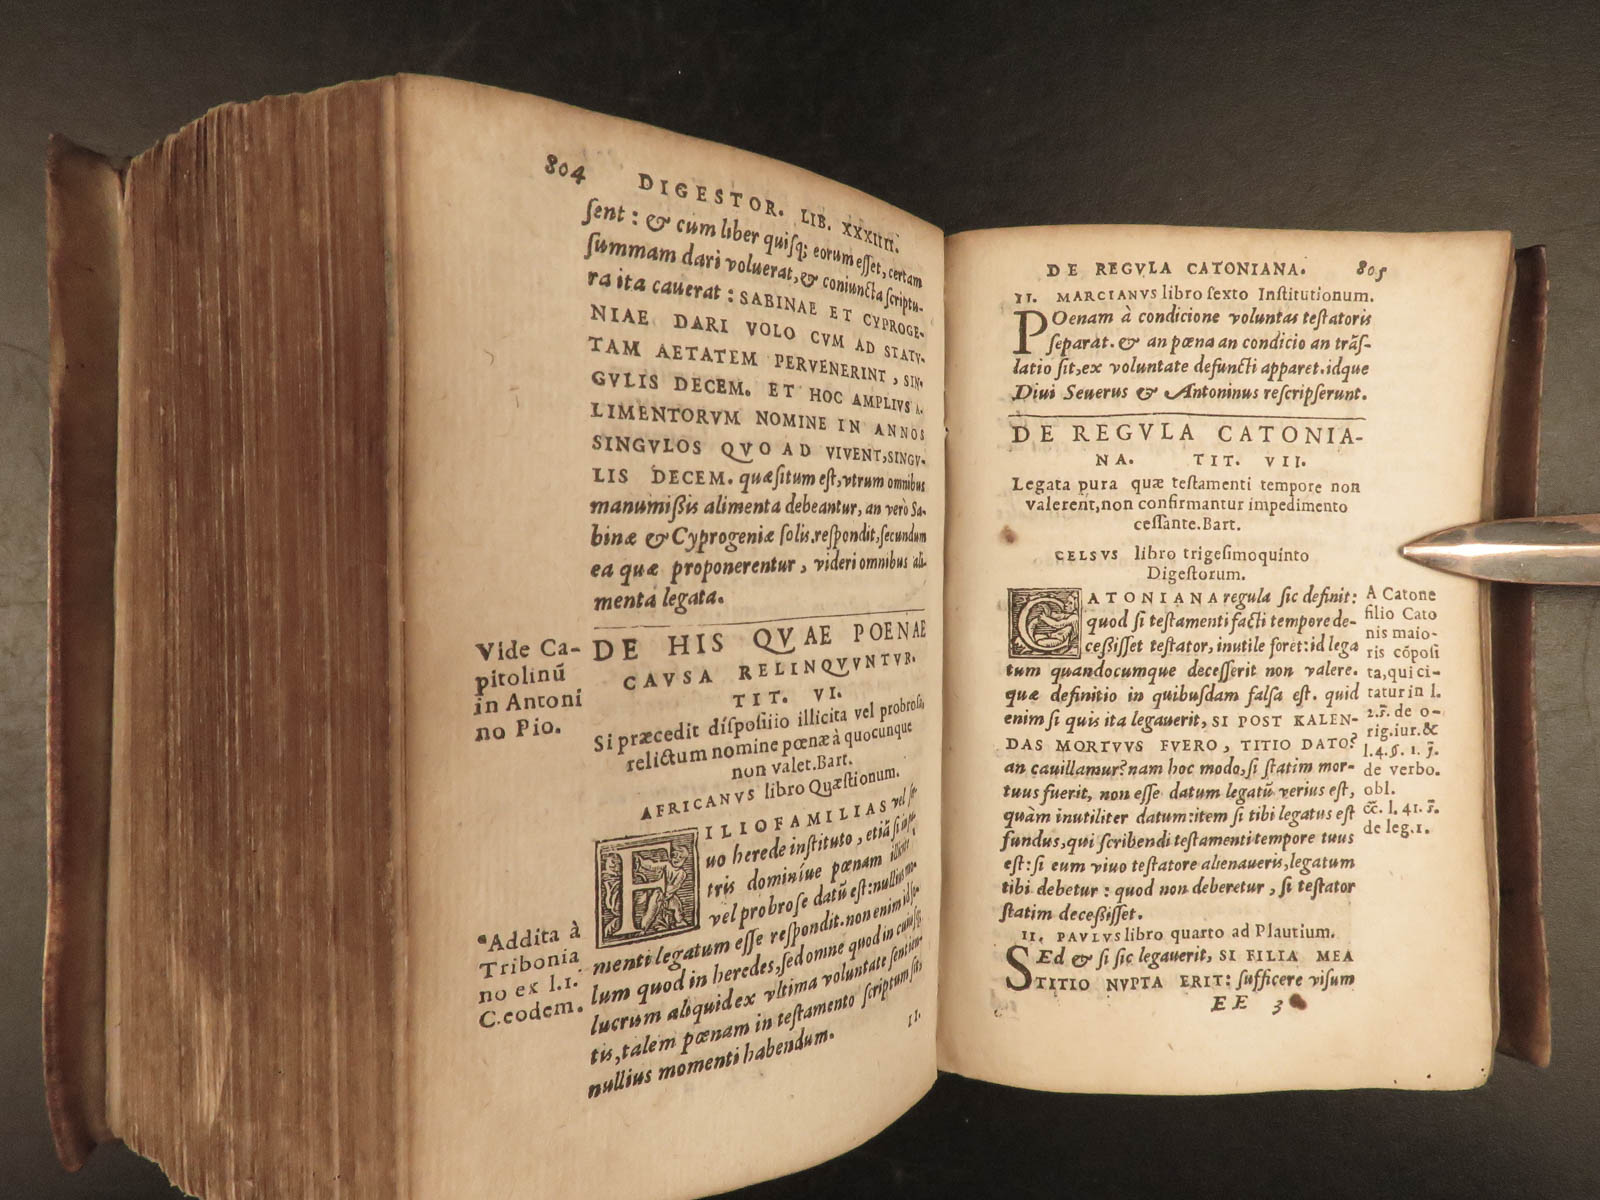 804 DIGESTOR. LIB. XXXIIII.
ſent: & cum liber quiſq; eorum eſſet, certam
ſummam dari voluerat, & coniuncta ſcriptu-
ra ita cauerat: SABINAE ET CYPROGE-
NIAE DARI VOLO CVM AD STATV-
TAM AETATEM PERVENERINT, SIN-
GVLIS DECEM. ET HOC AMPLIVS A-
LIMENTORVM NOMINE IN ANNOS
SINGVLOS QVOAD VIVENT, SINGV-
LIS DECEM. quæſitum eſt, vtrum omnibus
manumißis alimenta debeantur, an verò Sa-
binæ & Cyprogeniæ ſolis. reſpondit, ſecundum
ea quæ proponerentur, videri omnibus ali-
menta legata.
DE HIS QVAE POENAE
CAVSA RELINQVVNTVR.
TIT. VI.
Vide Ca-
pitolinū
in Antoni
no Pio.
Si præcedit diſpoſitio illicita vel probroſa,
relictum nomine pœnæ à quocunque
non valet. Bart.
AFRICANVS libro Quæſtionum.
FILIOFAMILIAS vel ſer-
uo herede inſtituto, etiā ſi in pa-
tris dominiue pœnam illicite
vel probroſe datū eſt: nullius mo-
menti legatum eſſe reſpondit. non enim id ſo-
lum quod in heredes, ſed omne quod in cuiuſq;
lucrum aliquid ex vltima voluntate ſentien-
tis, talem pœnam in teſtamento ſcriptum ſit,
nullius momenti habendum.
II.
*Addita à
Tribonia
no ex l.1.
C. eodem.
DE REGVLA CATONIANA. 805
II. MARCIANVS libro ſexto Inſtitutionum.
POenam à condicione voluntas teſtatoris
ſeparat. & an pœna an condicio an trāſ-
latio ſit, ex voluntate defuncti apparet. idque
Diui Seuerus & Antoninus reſcripſerunt.
DE REGVLA CATONIA-
NA. TIT. VII.
Legata pura quæ teſtamenti tempore non
valerent, non confirmantur impedimento
ceſſante. Bart.
CELSVS libro trigeſimoquinto
Digeſtorum.
CATONIANA regula ſic definit:
quod ſi teſtamenti facti tempore de-
ceßiſſet teſtator, inutile foret: id lega
tum quandocumque deceſſerit non valere.
quæ definitio in quibuſdam falſa eſt. quid
enim ſi quis ita legauerit, SI POST KALEN-
DAS MORTVVS FVERO, TITIO DATO?
an cauillamur? nam hoc modo, ſi ſtatim mor-
tuus fuerit, non eſſe datum legatū verius eſt,
quàm inutiliter datum: item ſi tibi legatus eſt
fundus, qui ſcribendi teſtamenti tempore tuus
eſt: ſi eum viuo teſtatore alienaueris, legatum
tibi debetur: quod non deberetur, ſi teſtator
ſtatim deceßiſſet.
A Catone
filio Cato
nis maio-
ris cōpoſi
ta, qui ci-
tatur in l.
2. §. de o-
rig. iur. &
l. 4. §. 1. ff.
de verbo.
obl.
&. l. 41. ff.
de leg. 1.
II. PAVLVS libro quarto ad Plautium.
SEd & ſi ſic legauerit, SI FILIA MEA
TITIO NVPTA ERIT: ſufficere viſum
EE 3